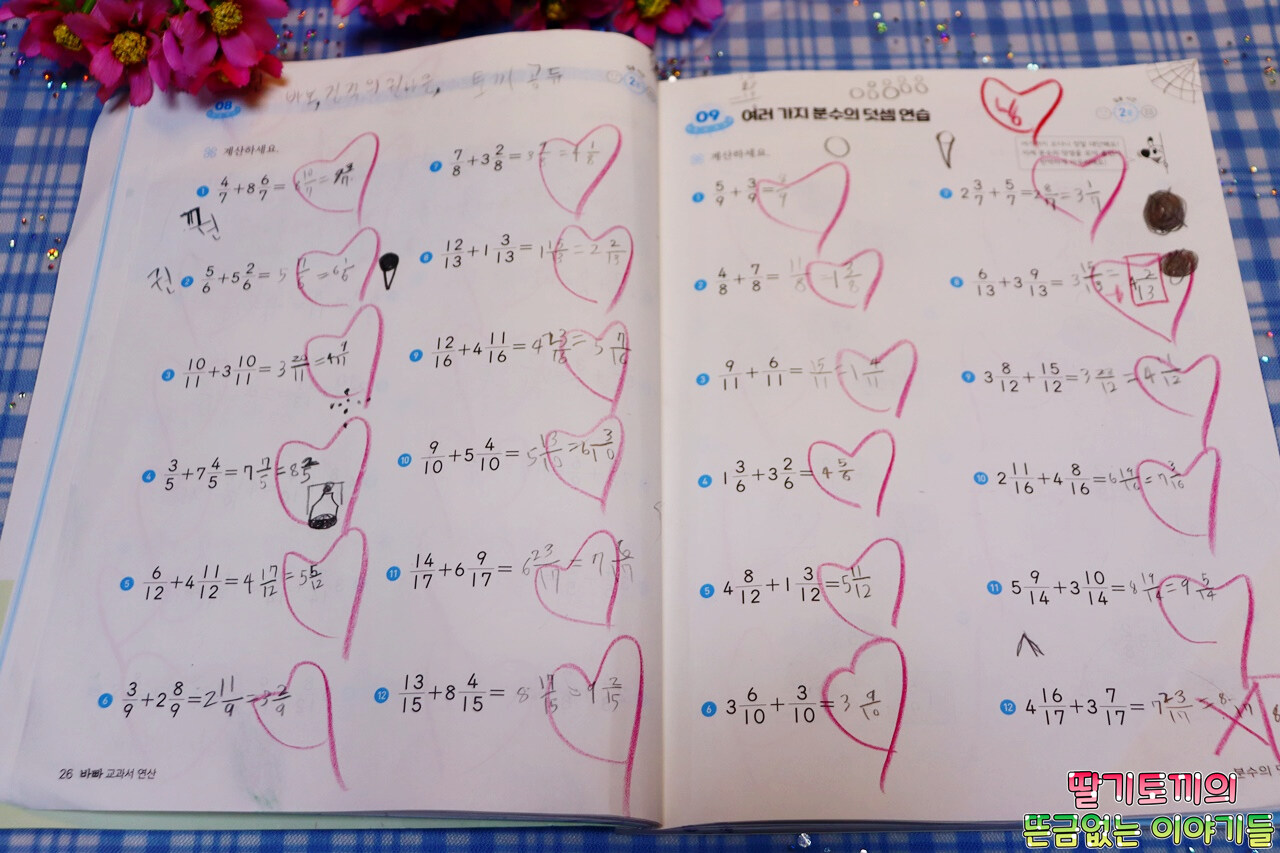 08
계산하세요.
1 4/7 + 8 6/7 =
2 5/6 + 5 2/6 = 5 = 6 1/6
3 10/11 + 3 10/11 = 3 20/11 = 4 9/11
4 3/5 + 7 4/5 = 7 7/5 = 8 2/5
5 6/12 + 4 11/12 = 4 17/12 = 5 5/12
6 3/9 + 2 8/9 = 2 11/9 = 3 2/9
7 7/8 + 3 2/8 = = 4 1/8
8 12/13 + 1 3/13 = 1 15/13 = 2 2/13
9 12/16 + 4 11/16 = 4 23/16 = 5 7/16
10 9/10 + 5 4/10 = 5 13/10 = 6 3/10
11 14/17 + 6 9/17 = 6 23/17 = 7 6/17
12 13/15 + 8 4/15 = 8 17/15 = 9 2/15
26 바빠 교과서 연산
09 여러 가지 분수의 덧셈 연습
계산하세요.
1 5/9 + 3/9 =
2 4/8 + 7/8 = 11/8 = 1 3/8
3 9/11 + 6/11 = 15/11 = 1 4/11
4 1 3/6 + 3 2/6 = 4 5/6
5 4 8/12 + 1 3/12 = 5 11/12
6 3 6/10 + 3/10 = 3 9/10
7 2 3/7 + 5/7 = 2 8/7 = 3 1/7
8 6/13 + 3 9/13 = 3 15/13 = 4 2/13
9 3 8/12 + 15/12 = 3 23/12 = 4 11/12
10 2 11/16 + 4 8/16 = 6 19/16 = 7 3/16
11 5 9/14 + 3 10/14 = 8 19/14 = 9 5/14
12 4 16/17 + 3 7/17 = 7 23/17 =
분수의
딸기토끼의
뜬금없는 이야기들